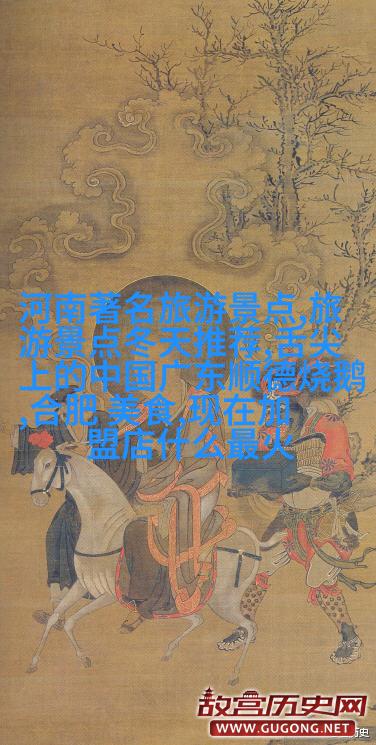 河南著名旅游景点,旅
游景点冬天推荐,舌尖
上的中国广东顺德烧鹅
,合肥 美食,现在加
盟店什么最火
故宫历史网
WWW.GUGONG.NET
历史